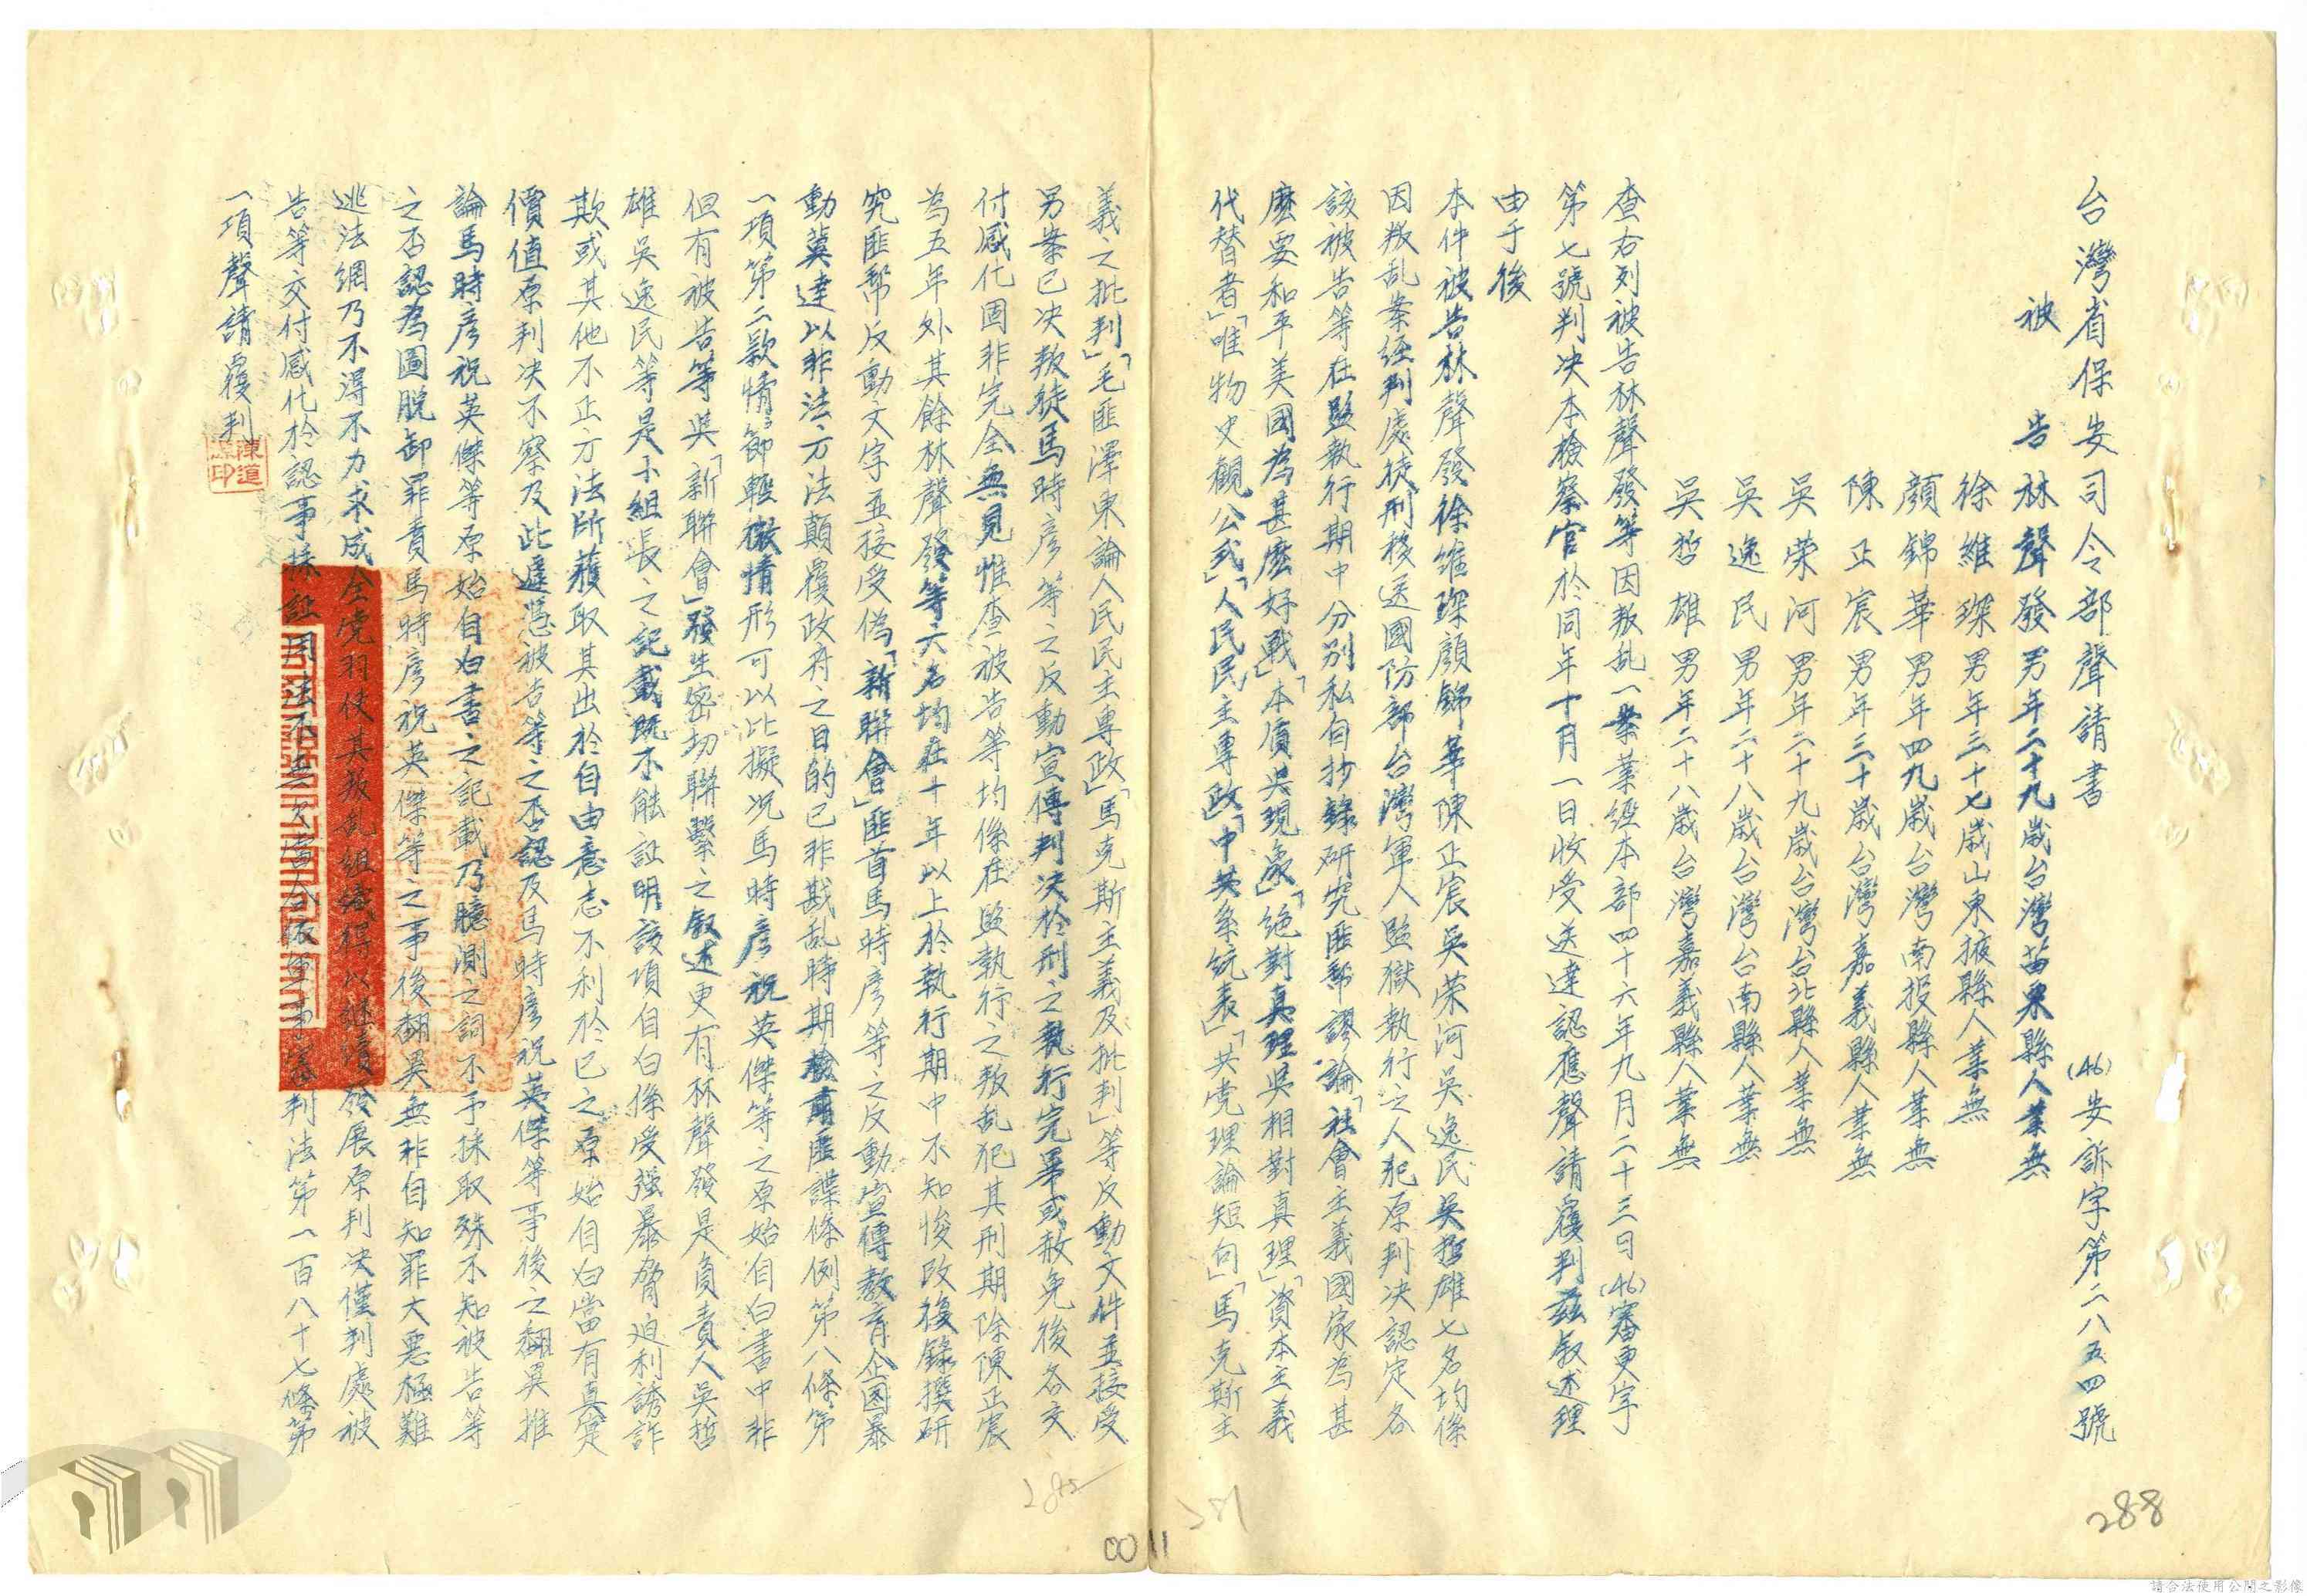 台灣省保安司令部聲請書
(46)安訴字第二八五四號
被告 林聲發 男年二十九歲台灣苗栗縣人業無
徐維琛 男年三十七歲山東掖縣人業無
顏錦華 男年四九歲台灣南投縣人業無
陳正宸 男年三十歲台灣嘉義縣人業無
吳荣河 男年二十九歲台灣台北縣人業無
吳逸民 男年二十八歲台灣台南縣人業無
吳哲雄 男年二十八歲台灣嘉義縣人業無
查右列被告林聲發等因叛乱一案業經本部四十六年九月二十三日(46)審更字
第七號判决本檢察官於同年十月一日收受送達認應聲請覆判茲叙述理
由于後
本件被告林聲發徐維琛顏錦華陳正宸吳荣河吳逸民吳哲雄七名均係
因叛乱案經判處徒刑移送國防部台灣軍人監獄執行之人犯原判决認定各
該被告等在監執行期中分别私自抄錄研究匪幫謬論「社會主義國家為甚
麽要和平美國為甚麽好戰」「本質吳現象」「絕對真理吳相對真理」「資本主義
代替者」「唯物史觀公式」「人民民主專政」「中共系統表」「共党理論短句」「馬克斯主
義之批判」「毛匪澤東論人民民主專政」「馬克斯主義及批判」等反動文件並接受
另案已决叛徒馬時彥等之反動宣傳判决於刑之執行完畢或赦免後各交
付感化固非完全無見惟查被告等均係在監執行之叛乱犯其刑期除陳正宸
為五年外其餘林聲發等六名均在十年以上於執行期中不知悛改復錄撰研
究匪幫反動文字並接受偽「新聯會」匪首馬時彥等之反動宣傳教育企圖暴
動冀達以非法方法顛覆政府之目的已非戡乱時期檢肅匪諜條例第八條第
一項第二款情節輕微情形可以比擬况馬時彥祝英傑等之原始自白書中非
但有被告等吳「新聯會」發生密切聯繫之叙述更有林聲發是負責人吳哲
雄吳逸民等是小組長之記載既不能証明該項自白係受强暴脅迫利誘詐
欺或其他不正方法所獲取其出於自由意志不利於己之原始自白當有真實
價值原判决不察及此遽憑被告等之否認及馬時彥祝英傑等事後之翻異推
論馬時彥祝英傑等原始自白書之記載乃臆測之詞不予採取殊不知被告等
之否認為圖脫卸罪責馬時彥祝英傑等之事後翻異無非自知罪大惡極難
逃法網乃不得不力求成全党羽使其叛乱組織得以繼續發展原判决僅判處被
告等交付感化於認事採証用法不無欠當合依軍事審判法第一百八十七條第
一項聲請覆判
288
287
285
0011
請合法使用公開之影像